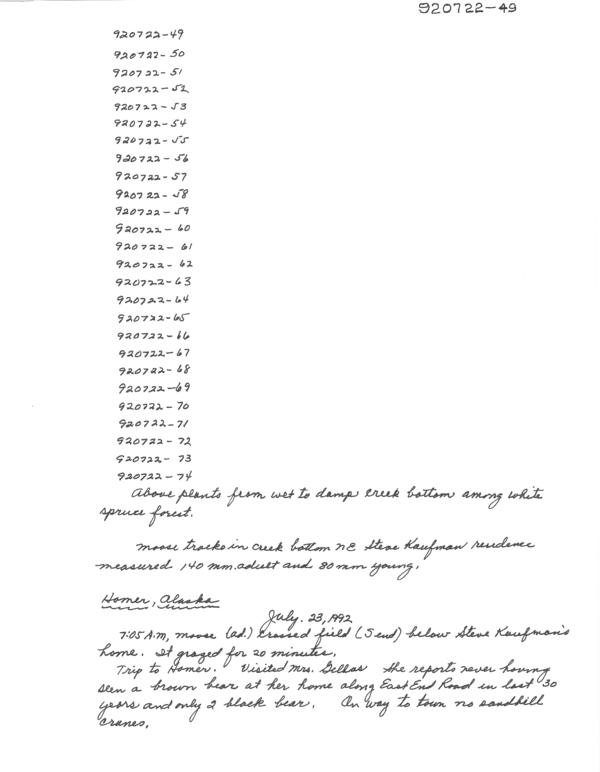 920722-49
920722-49
920722-50
920722-51
920722-52
920722-53
920722-54
920722-55
920722-56
920722-57
920722-58
920722-59
920722-60
920722-61
920722-62
920722-63
920722-64
920722-65
920722-66
920722-67
920722-68
920722-69
920722-70
920722-71
920722-72
920722-73
920722-74
Above plants from wet to damp creek bottom among white
spruce forest.
Moose tracks in creek bottom NE Steve Kaufman residence
measured 140 mm. adult and 80 mm young.
Homer, Alaska
July. 23, 1992
7:05 A.M, moose (ad.) crossed field (S end) below Steve Kaufman's
home. It grazed for 20 minutes.
Trip to Homer. Visited Mrs. She reports never having
seen a brown bear at her home along East End Road in last 30
years and only 2 black bear. On way to town no sandhill
cranes.